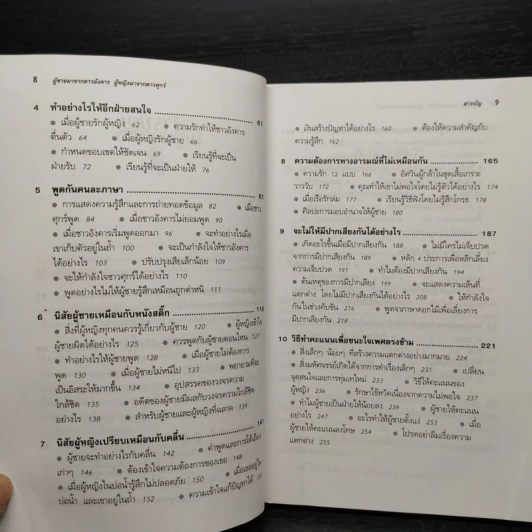 8 ผู้ชายมาจากดาวอังคาร ผู้หญิงมาจากดาวศุกร์
4 ทำอย่างไรให้อีกฝ่ายสนใจ 61
● เมื่อผู้ชายรักผู้หญิง 62 ● ความรักทำให้ชาวอังคาร
ตื่นตัว 64 ● เมื่อผู้หญิงรักผู้ชาย 66 ●
กำหนดขอบเขตให้ชัดเจน 69 ● เรียนรู้ที่จะเป็น
ฝ่ายรับ 72 ● เรียนรู้ที่จะเป็นฝ่ายให้ 76
5 พูดกันคนละภาษา 81
● การแสดงความรู้สึกและการถ่ายทอดข้อมูล 82 ● เมื่อชาว
ศุกร์พูด 84 ● เมื่อชาวอังคารไม่ยอมพูด 90 ●
เมื่อชาวอังคารเริ่มพูดออกมา 96 ● จะทำอย่างไรเมื่อ
เขาเก็บตัวอยู่ในถ้ำ 100 ● จะเป็นกำลังใจให้ชาวอังคาร
ได้อย่างไร 103 ● ปรับปรุงเสียเล็กน้อย 109
● จะให้กำลังใจชาวศุกร์ได้อย่างไร 110 ●
พูดอย่างไรไม่ให้ผู้ชายรู้สึกเหมือนถูกตำหนิ 111
6 นิสัยผู้ชายเหมือนกับหนังสติ๊ก 119
● สิ่งที่ผู้หญิงทุกคนควรรู้เกี่ยวกับผู้ชาย 120 ● ผู้หญิงเข้าใจ
ผู้ชายผิดได้อย่างไร 125 ● ควรพูดกับผู้ชายตอนไหน 128
● ทำอย่างไรให้ผู้ชายพูด 128 ● เมื่อผู้ชายไม่ต้องการ
พูด 130 ● เมื่อผู้ชายไม่หนีไป 133 ● พยายามที่จะ
เป็นอิสระให้มากขึ้น 134 ● อุปสรรคของวงจรความ
ใกล้ชิด 135 ● อดีตของผู้ชายมีผลกับวงจรความใกล้ชิด
อย่างไร 138 ● สำหรับผู้ชายและผู้หญิงที่ฉลาด 139
7 นิสัยผู้หญิงเปรียบเหมือนกับคลื่น 141
● ผู้ชายจะทำอย่างไรกับคลื่น 142 ● คำพูดและการโต้เถียง
เก่าๆ 146 ● ต้องเข้าใจความต้องการของเธอ 148 ●
เมื่อผู้หญิงในบ่อน้ำรู้สึกไม่ปลอดภัย 150 ● เมื่อเธออยู่ใน
บ่อน้ำ และเขาอยู่ในถ้ำ 152 ● ความเข้าใจแก้ปัญหาได้
สารบัญ 9
● เงินสร้างปัญหาได้อย่างไร 160 ● ต้องให้ความสำคัญกับ
ความรู้สึก 162
8 ความต้องการทางอารมณ์ที่ไม่เหมือนกัน 165
● ความรัก 12 แบบ 166 ● อัศวินผู้กล้าในชุดเสื้อเกราะ
วาววับ 172 ● คุณทำให้เขาไม่พอใจโดยไม่รู้ตัวได้อย่างไร 174
● เมื่อเรือรักล่ม 177 ● เรียนรู้วิธีฟังโดยไม่รู้สึกโกรธ 178
● ศิลปะการมอบอำนาจให้ผู้ชาย 180
9 จะไม่ให้มีปากเสียงกันได้อย่างไร 187
● เกิดอะไรขึ้นเมื่อมีปากเสียงกัน 188 ● ไม่มีใครไม่เจ็บปวด
จากการมีปากเสียงกัน 189 ● หลัก 4 ประการเพื่อหลีกเลี่ยง
ความเจ็บปวด 191 ● ทำไมต้องมีปากเสียงกัน 194 ●
ต้นเหตุของการมีปากเสียงกัน 201 ● จะแสดงความเห็นที่
แตกต่าง โดยไม่มีปากเสียงกันได้อย่างไร 208 ● ให้กำลังใจ
กันในช่วงคับขัน 215 ● พูดจาภาษาดอกไม้เพื่อเลี่ยงการ
มีปากเสียงกัน 218
10 วิธีทำคะแนนเพื่อชนะใจเพศตรงข้าม 221
● สิ่งเล็กๆ น้อยๆ ที่สร้างความแตกต่างอย่างมากมาย 224 ●
สิ่งมหัศจรรย์เกิดได้จากการทำเรื่องเล็กๆ 229 ● เปลี่ยน
จุดสนใจและการทุ่มเทใหม่ 235 ● วิธีให้คะแนนของ
ผู้หญิง 239 ● รักษาไข้หวัดเนื่องจากความไม่พอใจ 237 ●
ทำไมผู้ชายเป็นฝ่ายให้น้อยลง 242 ● ผู้ชายให้คะแนน
อย่างไร 247 ● อะไรทำให้ผู้ชายตั้งแง่ 253 ● เมื่อ
ผู้ชายให้คะแนนลงโทษ 254 ● โปรดอย่าลืมเรื่องความ
แตกต่าง 255